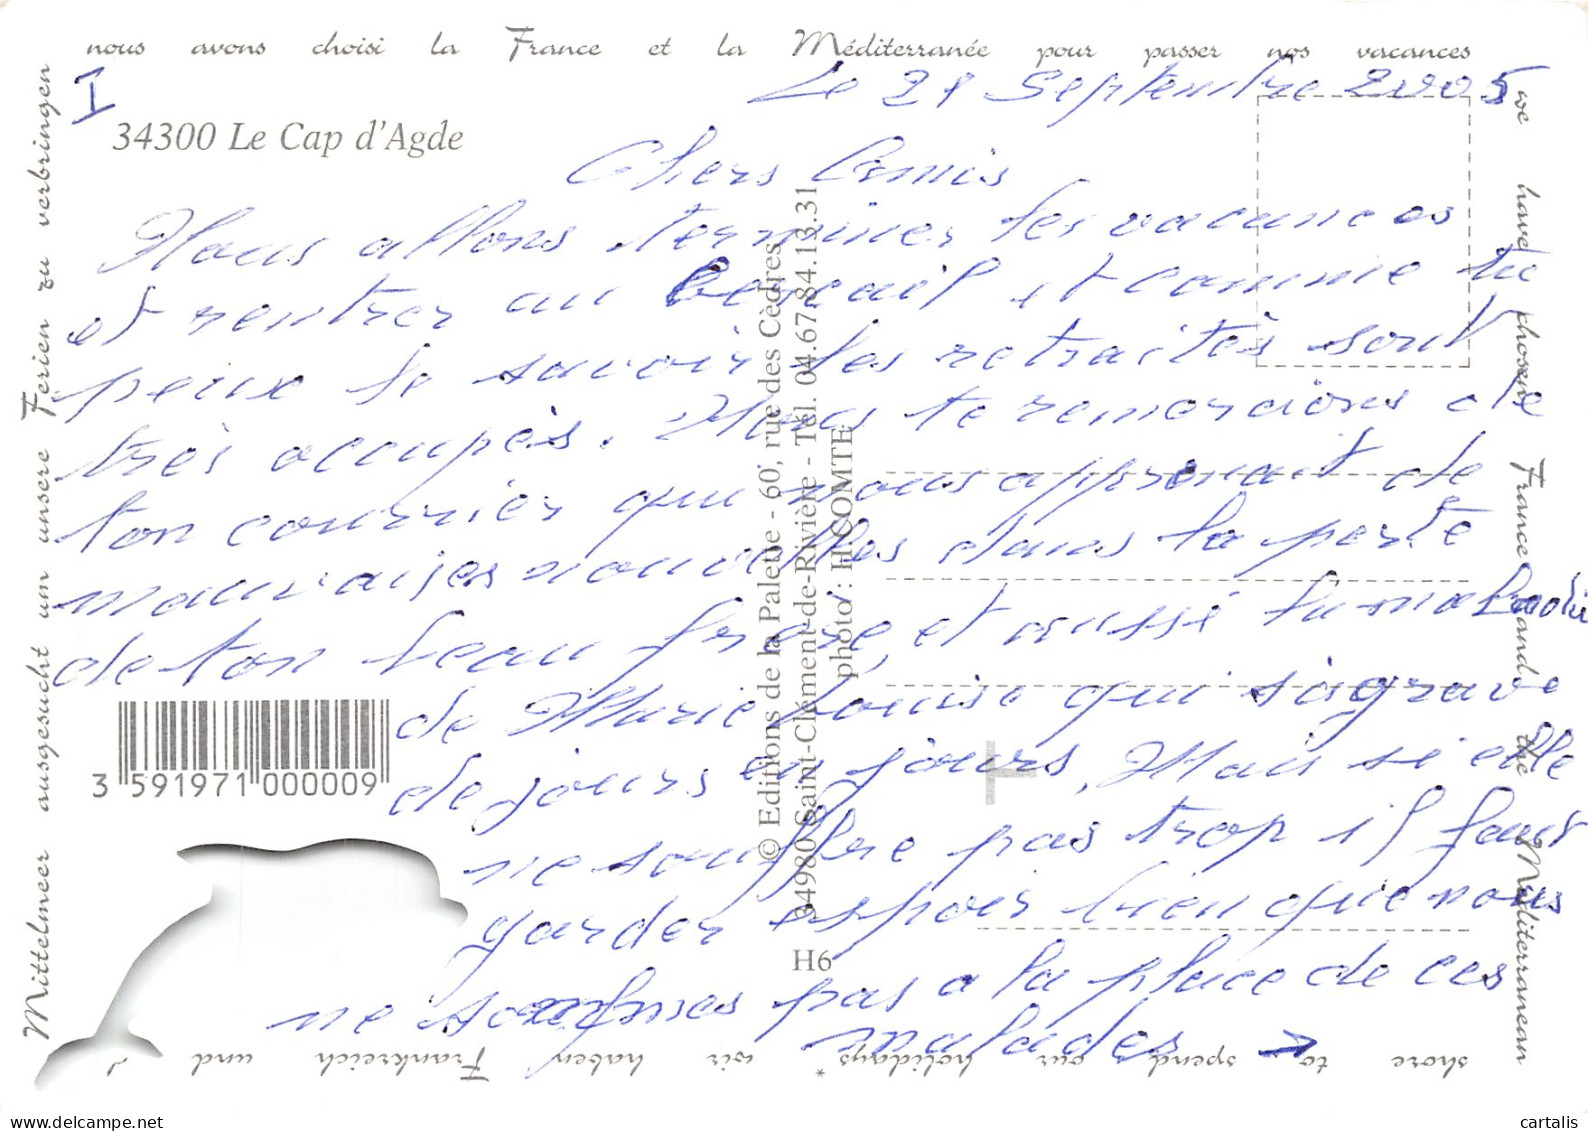 nous avons choisi la France et la Méditerranée pour passer nos vacances
I
Le 21 Septembre 2005
34300 Le Cap d'Agde
Chers Amis
Nous allons terminer les vacances
et rentrer au Bercail et comme tu
peux le savoir les retraités sont
très occupés. Nous te remercions de
ton courrier qui nous apprenait de
mauvaises nouvelles dans la perte
de ton beau frère, et aussi la maladie
de Marie Louise qui s'agrave
de jours en jours. Mais si elle
ne souffre pas trop il faut
garder espoir bien que nous
ne sommes pas a la place de ces
malades →
3 591971 000009
© Editions de la Palette - 60, rue des Cèdres
34980 Saint-Clément-de-Rivière - Tél. 04.67.84.13.31
photo : H. COMTE
H6
we have chosen France and the Mediterranean
shore to spend our holidays * wir haben Frankreich und d
Mittelmeer ausgesucht un unsere Ferien zu verbringen
cartalis